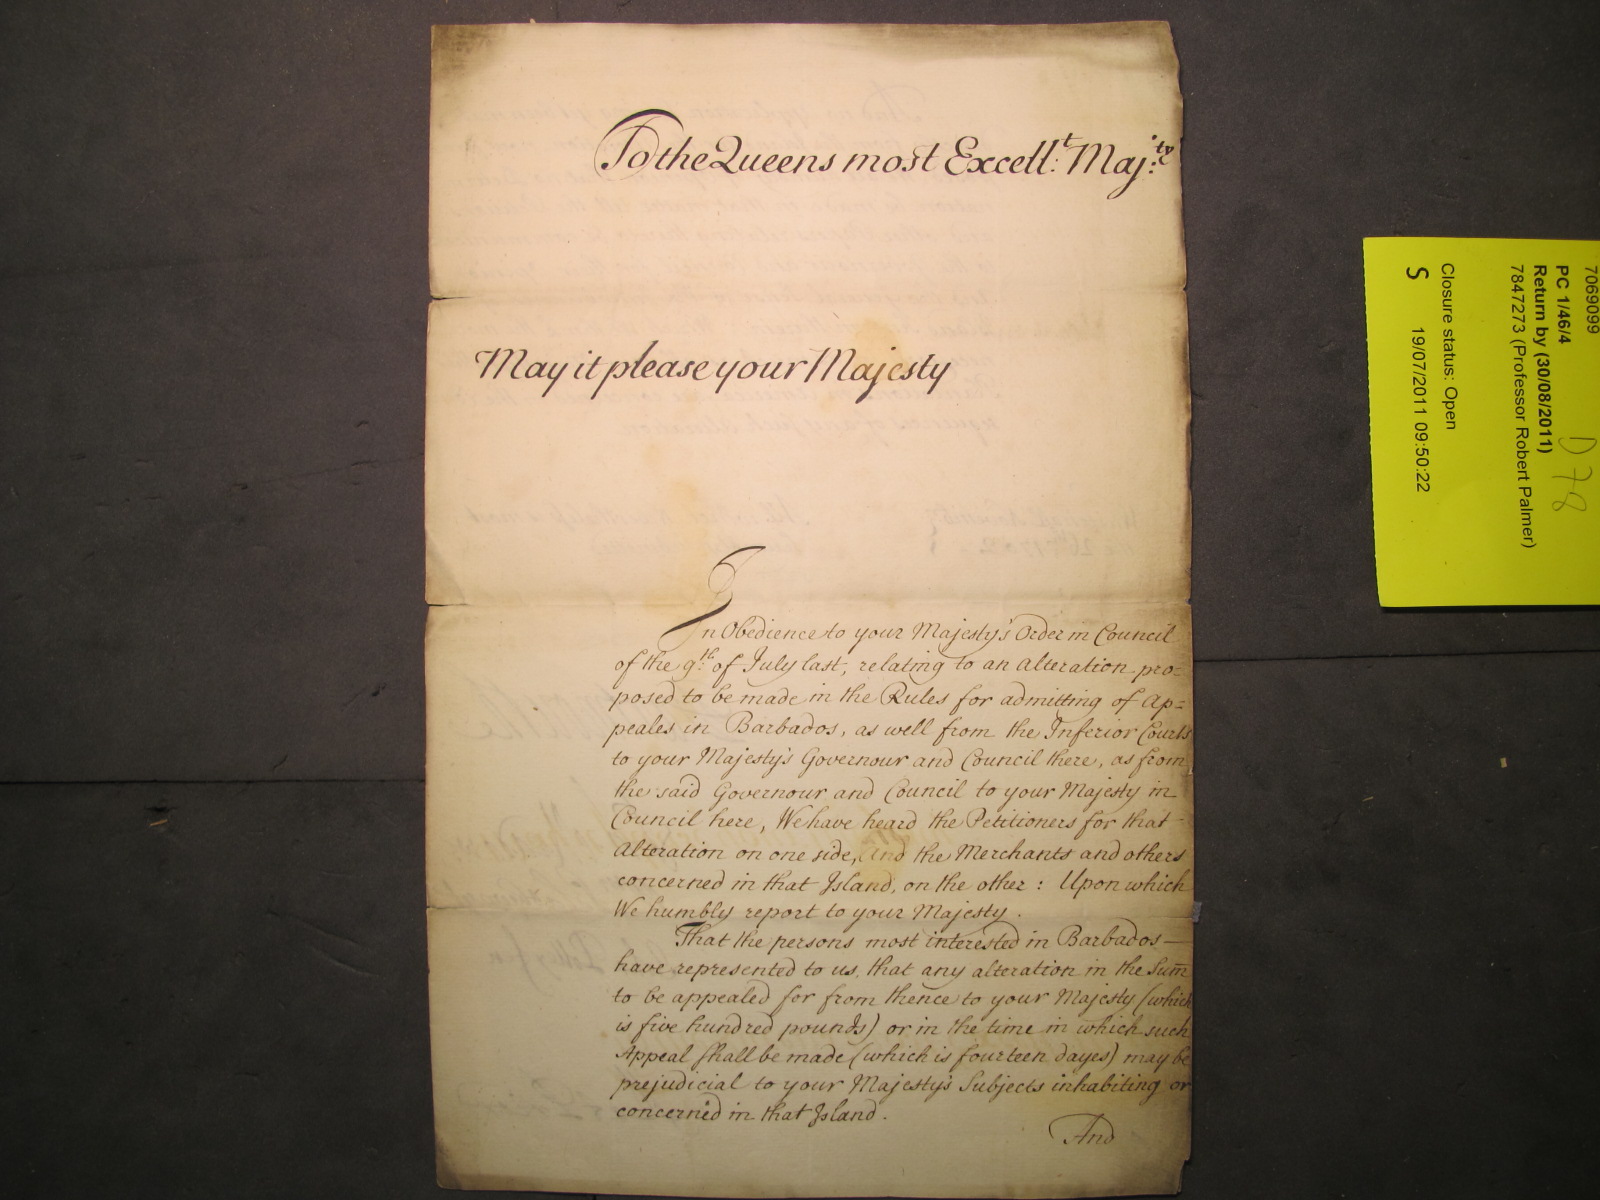 To the Queens most Excell:t Maj:tie
May it please your Majesty
In Obedience to your Majesty's Order in Council
of the 9:th of July last, relating to an alteration pro=
posed to be made in the Rules for admitting of Ap=
peales in Barbados, as well from the Inferior Courts
to your Majesty's Governour and Council there, as from
the said Governour and Council to your Majesty in
Council here, We have heard the Petitioners for that
alteration on one side, and the Merchants and others
concerned in that Island, on the other: Upon which
We humbly report to your Majesty.
That the persons most interested in Barbados—
have represented to us, that any alteration in the Sum̄
to be appealed for from thence to your Majesty (which
is five hundred pounds) or in the time in which such
Appeal shall be made (which is fourteen dayes) may be
prejudicial to your Majesty's Subjects inhabiting or
concerned in that Island.
And
7069099
PC 1/46/4
Return by (30/08/2011)
7847273 (Professor Robert Palmer)
Closure status: Open
S 19/07/2011 09:50:22
D 78